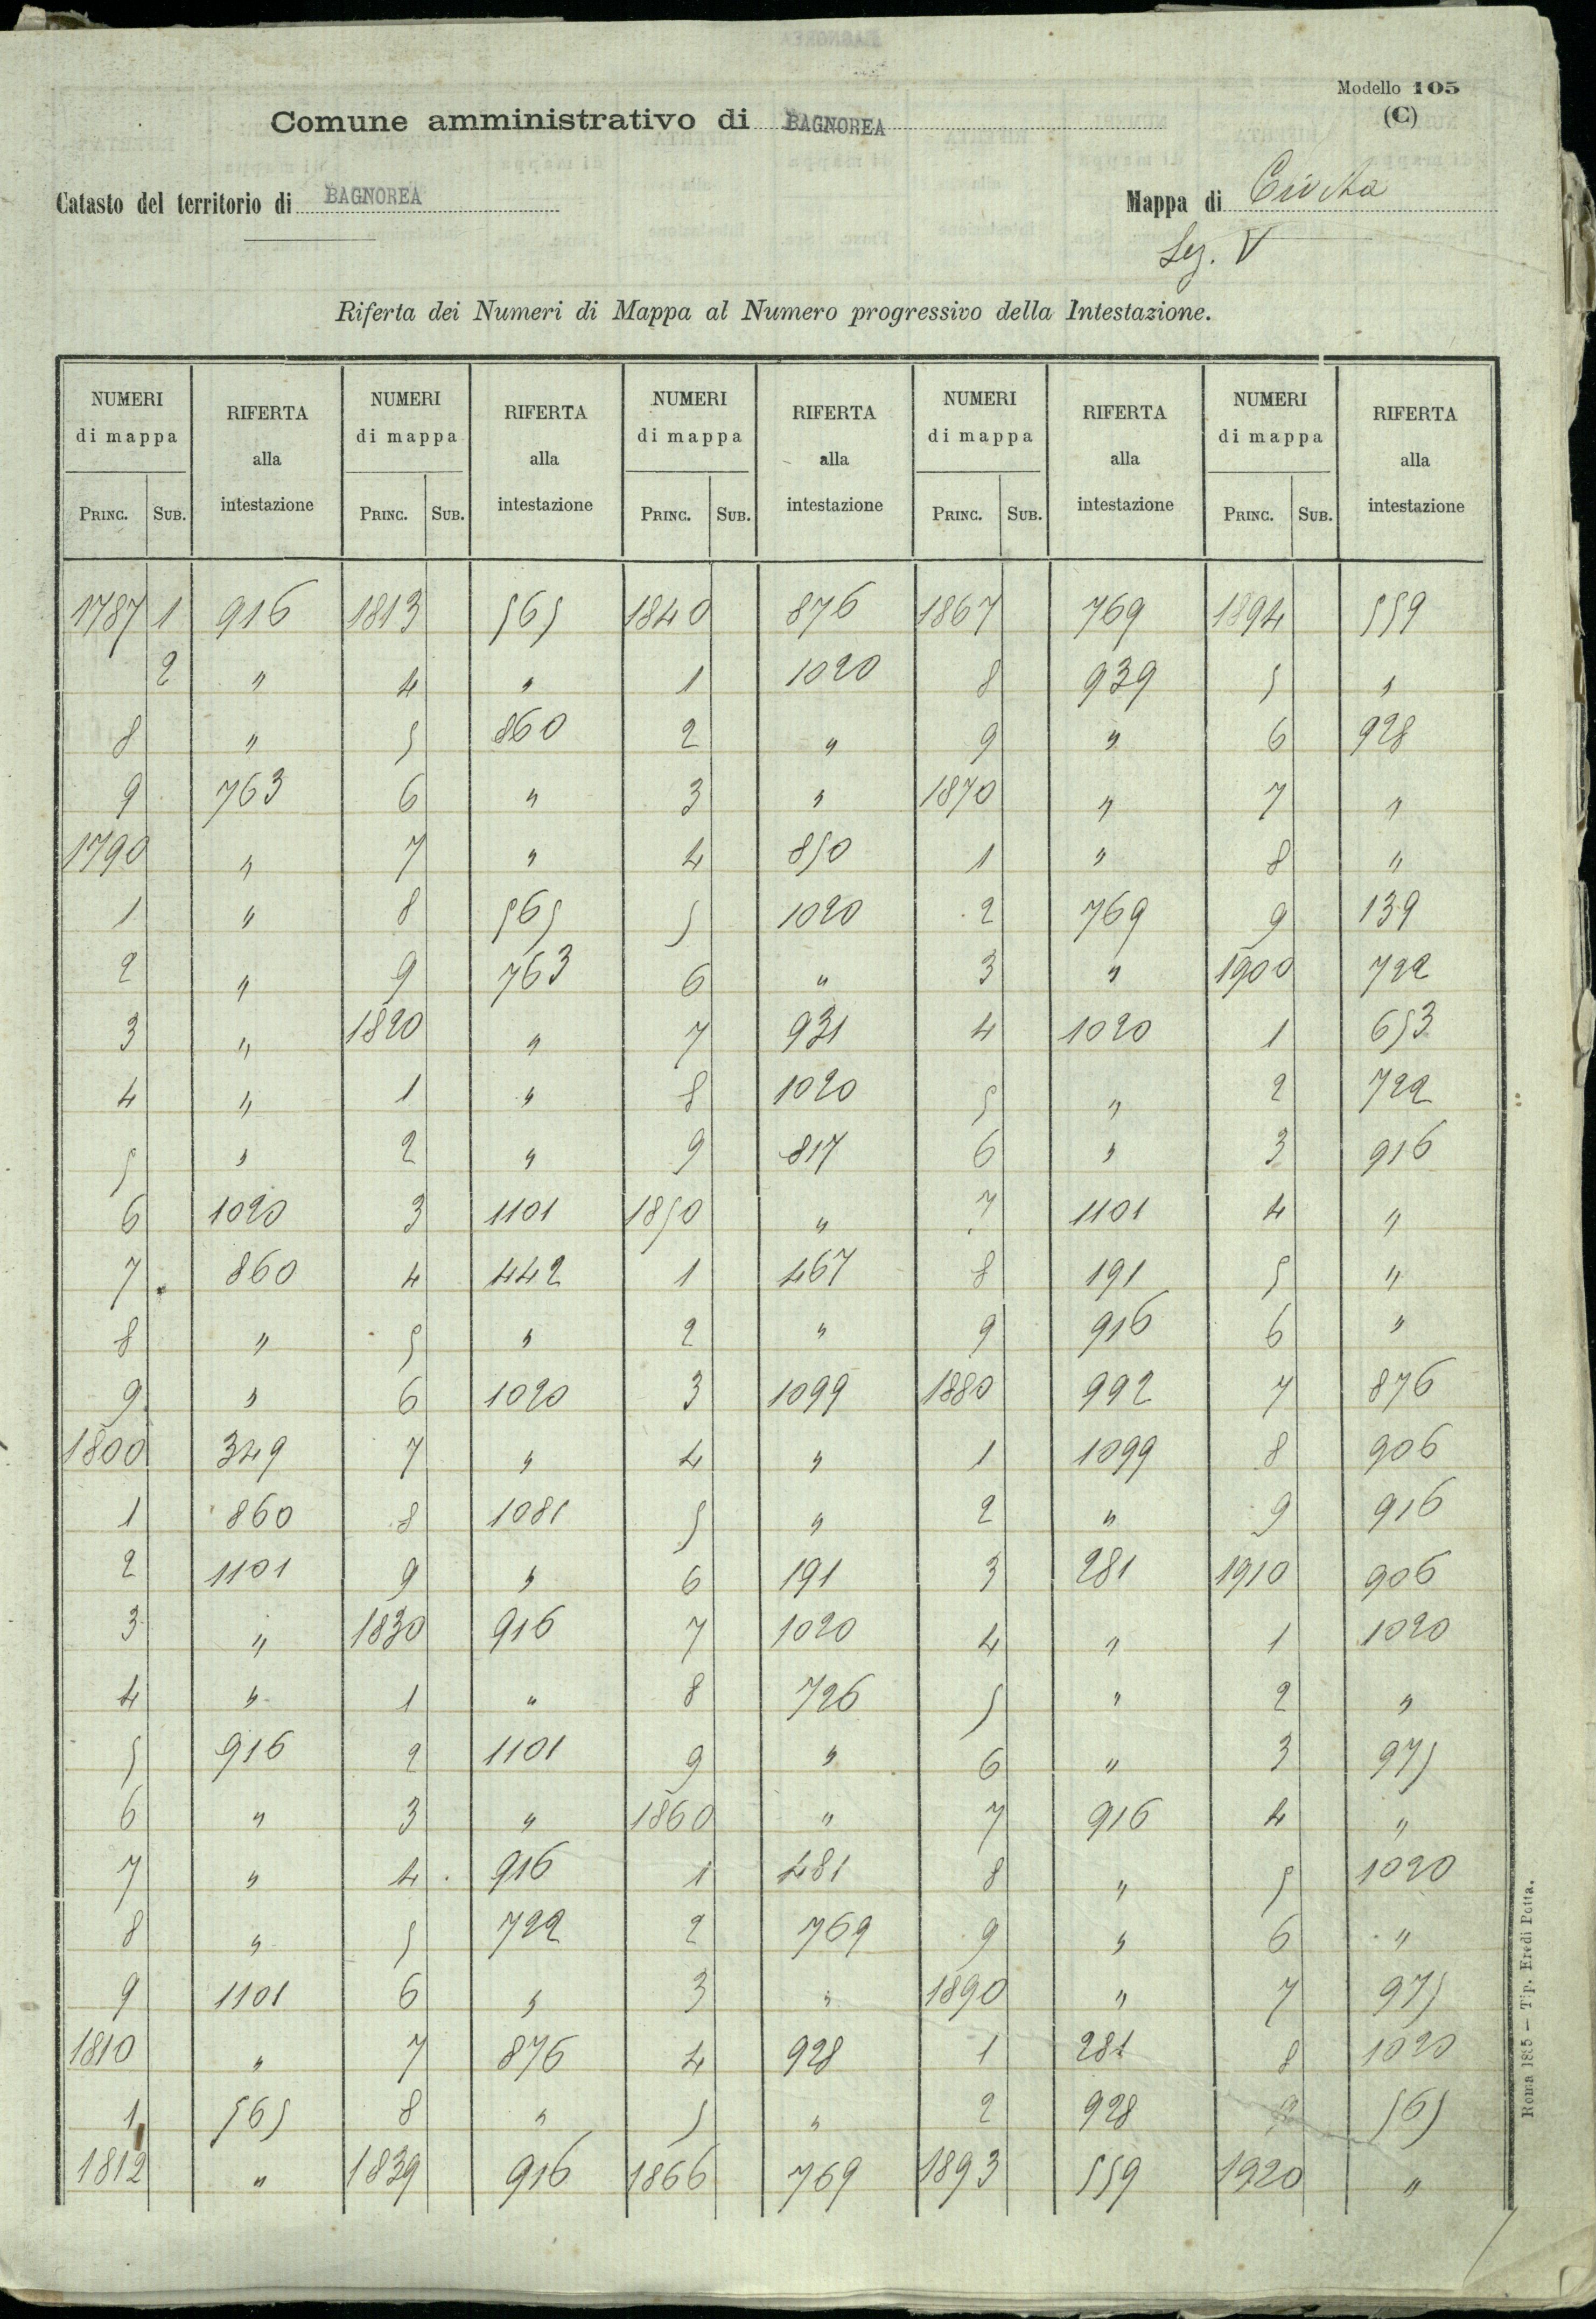 Modello 105
(C)
Comune amministrativo di BAGNOREA
Catasto del territorio di BAGNOREA Mappa di Civita
Sez. V
Riferta dei Numeri di Mappa al Numero progressivo della Intestazione.
NUMERI di mappa RIFERTA alla intestazione NUMERI di mappa RIFERTA alla intestazione NUMERI di mappa RIFERTA alla intestazione NUMERI di mappa RIFERTA alla intestazione NUMERI di mappa RIFERTA alla intestazione
PRINC. SUB. PRINC. SUB. PRINC. SUB. PRINC. SUB. PRINC. SUB.
1787 1 916 1813 565 1840 876 1867 769 1894 559
2 " 4 " 1 1020 8 939 5 "
8 " 5 860 2 " 9 " 6 928
9 763 6 " 3 " 1870 " 7 "
1790 " 7 " 4 850 1 " 8 "
1 " 8 565 5 1020 2 769 9 139
2 " 9 763 6 " 3 " 1900 722
3 " 1820 " 7 931 4 1020 1 653
4 " 1 " 8 1020 5 " 2 722
5 " 2 " 9 817 6 " 3 916
6 1020 3 1101 1850 " 7 1101 4 "
7 860 4 442 1 467 8 191 5 "
8 " 5 " 2 " 9 916 6 "
9 " 6 1020 3 1099 1880 992 7 876
1800 349 7 " 4 " 1 1099 8 906
1 860 8 1081 5 " 2 " 9 916
2 1101 9 " 6 191 3 281 1910 906
3 " 1830 916 7 1020 4 " 1 1020
4 " 1 " 8 726 5 " 2 "
5 916 2 1101 9 " 6 " 3 975
6 " 3 " 1860 " 7 916 4 "
7 " 4 916 1 481 8 " 5 1020
8 " 5 722 2 769 9 " 6 "
9 1101 6 " 3 " 1890 " 7 975
1810 " 7 876 4 928 1 281 8 1020
1 565 8 " 5 " 2 928 9 565
1812 " 1839 916 1866 769 1893 559 1920 "
Tip. Eredi Botta.